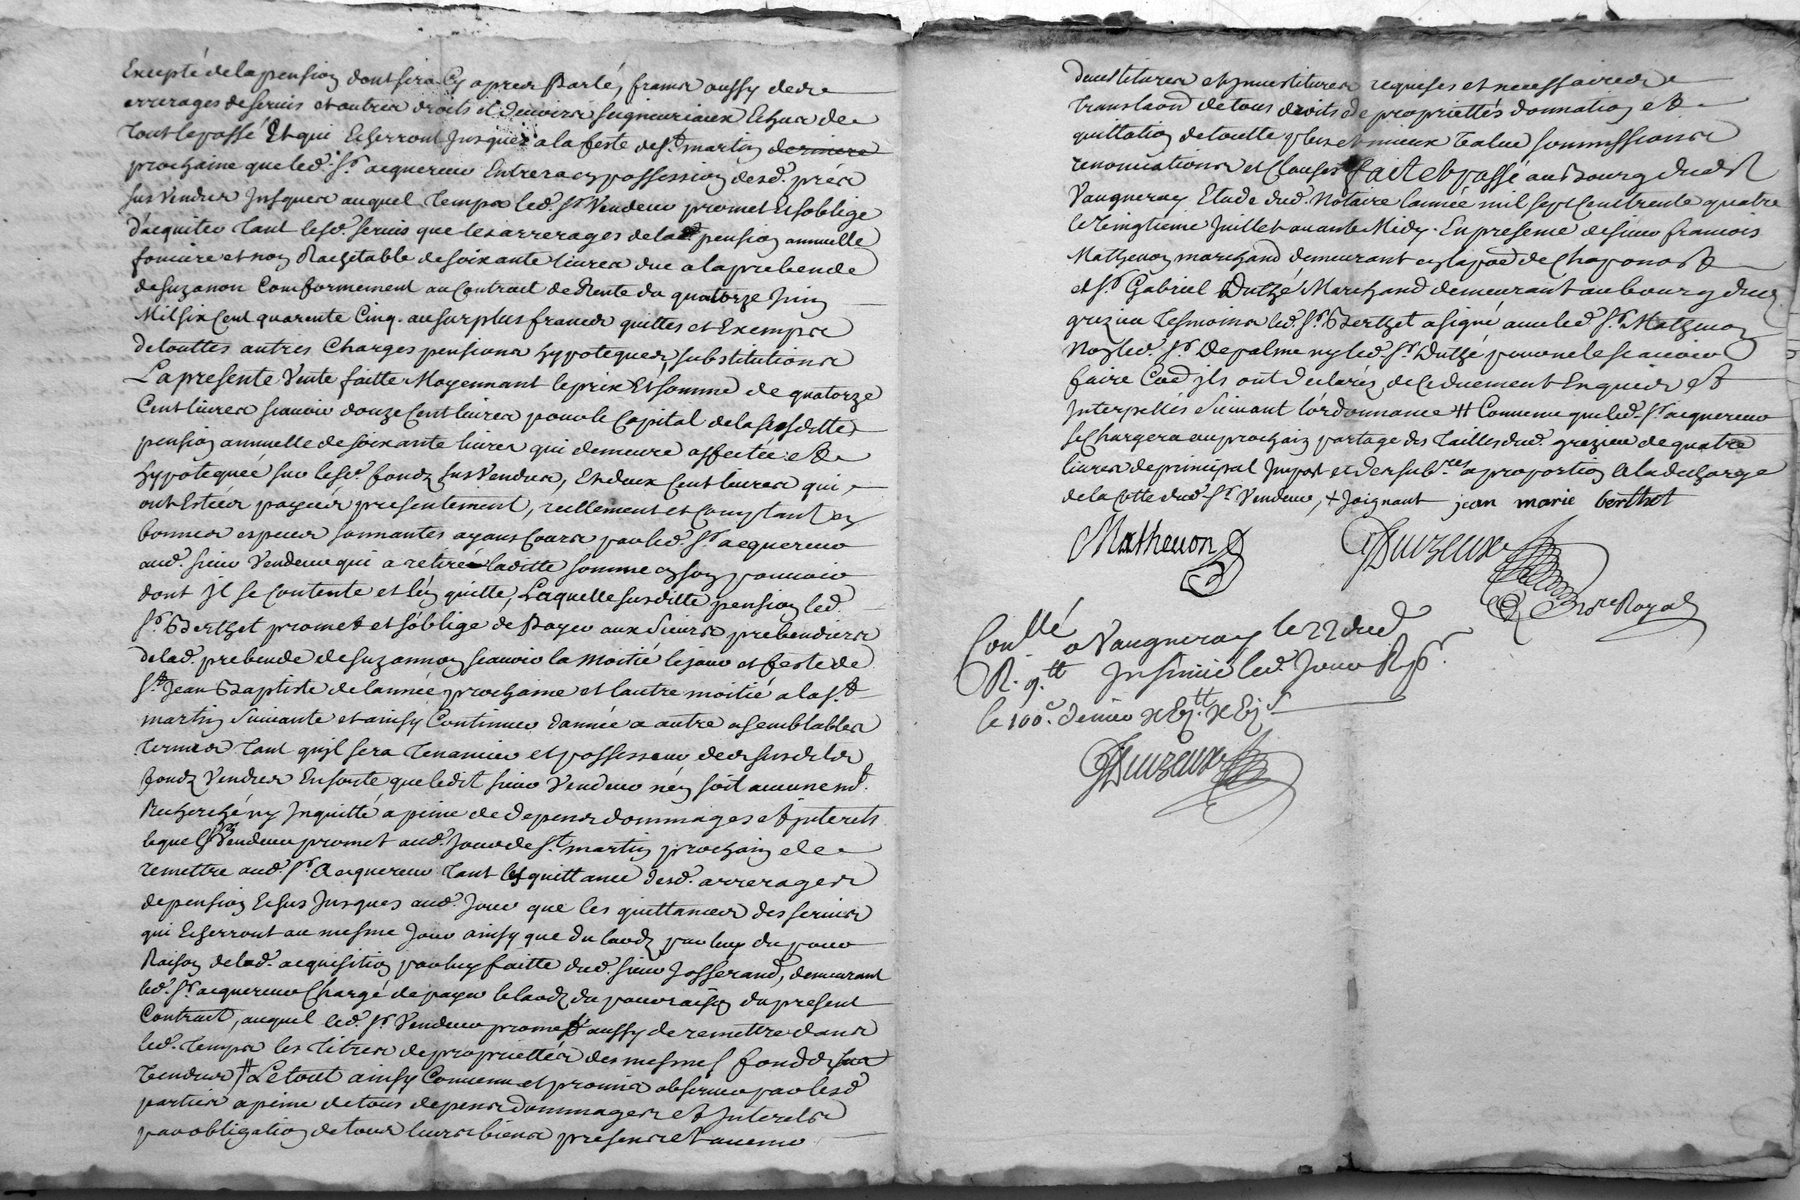 Excepté de la pension dont sera Cy apres Parlé, francs aussy de
arrerages de servis et autres droits et devoirs seigneuriaux Echus de
Tout le passé Et qui Echerront Jusques a la feste de St martin derniere
prochaine que led. Sr acquereur Entrera en possession desd. prés
sus Vendus Jusques auquel Temps led. Sr Vendeur promet et soblige
dacquiter Tant lesd. servis que les arrerages de lad. pension annuelle
fonciere et non Rachetable de soixante livres due a la prebende
de suzanon Conformement au Contract de Rente du quatorze Juin
Mil six Cent quarente Cinq. au surplus francs quittes et Exempts
de touttes autres Charges pensions hypoteques, substitutions
La presente Vente faitte Moyennant le prix Et somme de quatorze
Cent livres scavoir douze Cent livres pour le Capital de la susditte
pension annuelle de soixante livres qui demeure affectée et
hypotequée sur lesd. fondz sus Vendus, Et deux Cent livres qui
ont Esteés payées presentement, reellement et Comptant en
bonnes especes sonnantes ayans Cours par led. Sr acquereur
aud. sieur Vendeur qui a retiré laditte somme en son pouvoir
dont Il se Contente et l'en quitte, Laquelle susditte pension led.
Sr Berthet promet et soblige de Payer aux Sieurs prebendiers
de lad. prebende de suzannon scavoir la Moitié le jour et feste de
St Jean Baptiste de lannée prochaine et lautre moitié a la St
martin Suivante et ainsy Continuer dannée a autre a semblables
Termes Tant quil sera Tenancier et possesseur des susdits
fondz Vendus En sorte que ledit sieur Vendeur n'en soit aucunemt.
Recherché ny Inquitté a peine de depens dommages et Interets
lequel Sr Vendeur promet aud. Jour de St. martin prochain de
remettre aud. Sr Acquereur Tant les quittance desd. arrerages
de pension Echus Jusques aud. Jour que les quittances des servis
qui Echerront au mesme Jour ainsy que du laodz par luy du pour
Raison de lad. acquisition par luy faitte dud. sieur Josserand, demeurant
led. Sr acquereur Chargé de payer le laodz du pour raison du present
Contract, auquel led. Sr Vendeur promet aussy de remettre dans
led. Temps les Titres de proprietés des mesmes fondz sus
Vendus # Le tout ainsy Convenu et promis observer par lesd
parties a peine de tous depens dommages et Interets
par obligation de tous leurs biens presens et avenir
devestitures et Investitures requises et necessaires
Translaon de tous droits de proprietés donnation et
quittation de toutte plus et mieux Value soumissions
renonciations et Clauses fait et passé au Bourg dud.
Vaugneray Etude dud. Notaire lannée mil sept Cent trente quatre
le Vingtieme Juillet avant Midy. En presence de sieur francois
Mathevon marchand demeurant en la par de Chaponost
et Sr Gabriel Duthé Marchand demeurant au bourg dud.
grezieu Tesmoins led. Sr Berthet a signé avec led. Sr. Mathevon
Non led. Sr Depalme ny led. Sr. Duthé pour ne le scavoir
faire Coe ils ont declarés, de Ce duement Enquis et
Interpellés Suivant l'ordonnance # Convenu que led. Sr acquereur
se Chargera au prochain partage des Tailles dud. grezieu de quatre
livres de principal Impost et des sub.res a proportion a la decharge
de la Cotte dud. Sr. Vendeur, + Joignant jean marie berthet
Mathevon
Duizeux
Nore Royal
Con.llé a Vaugneray le 22 dud
R. 9.tt Insinué led. Jour R
le 100.e denier
Duizeux